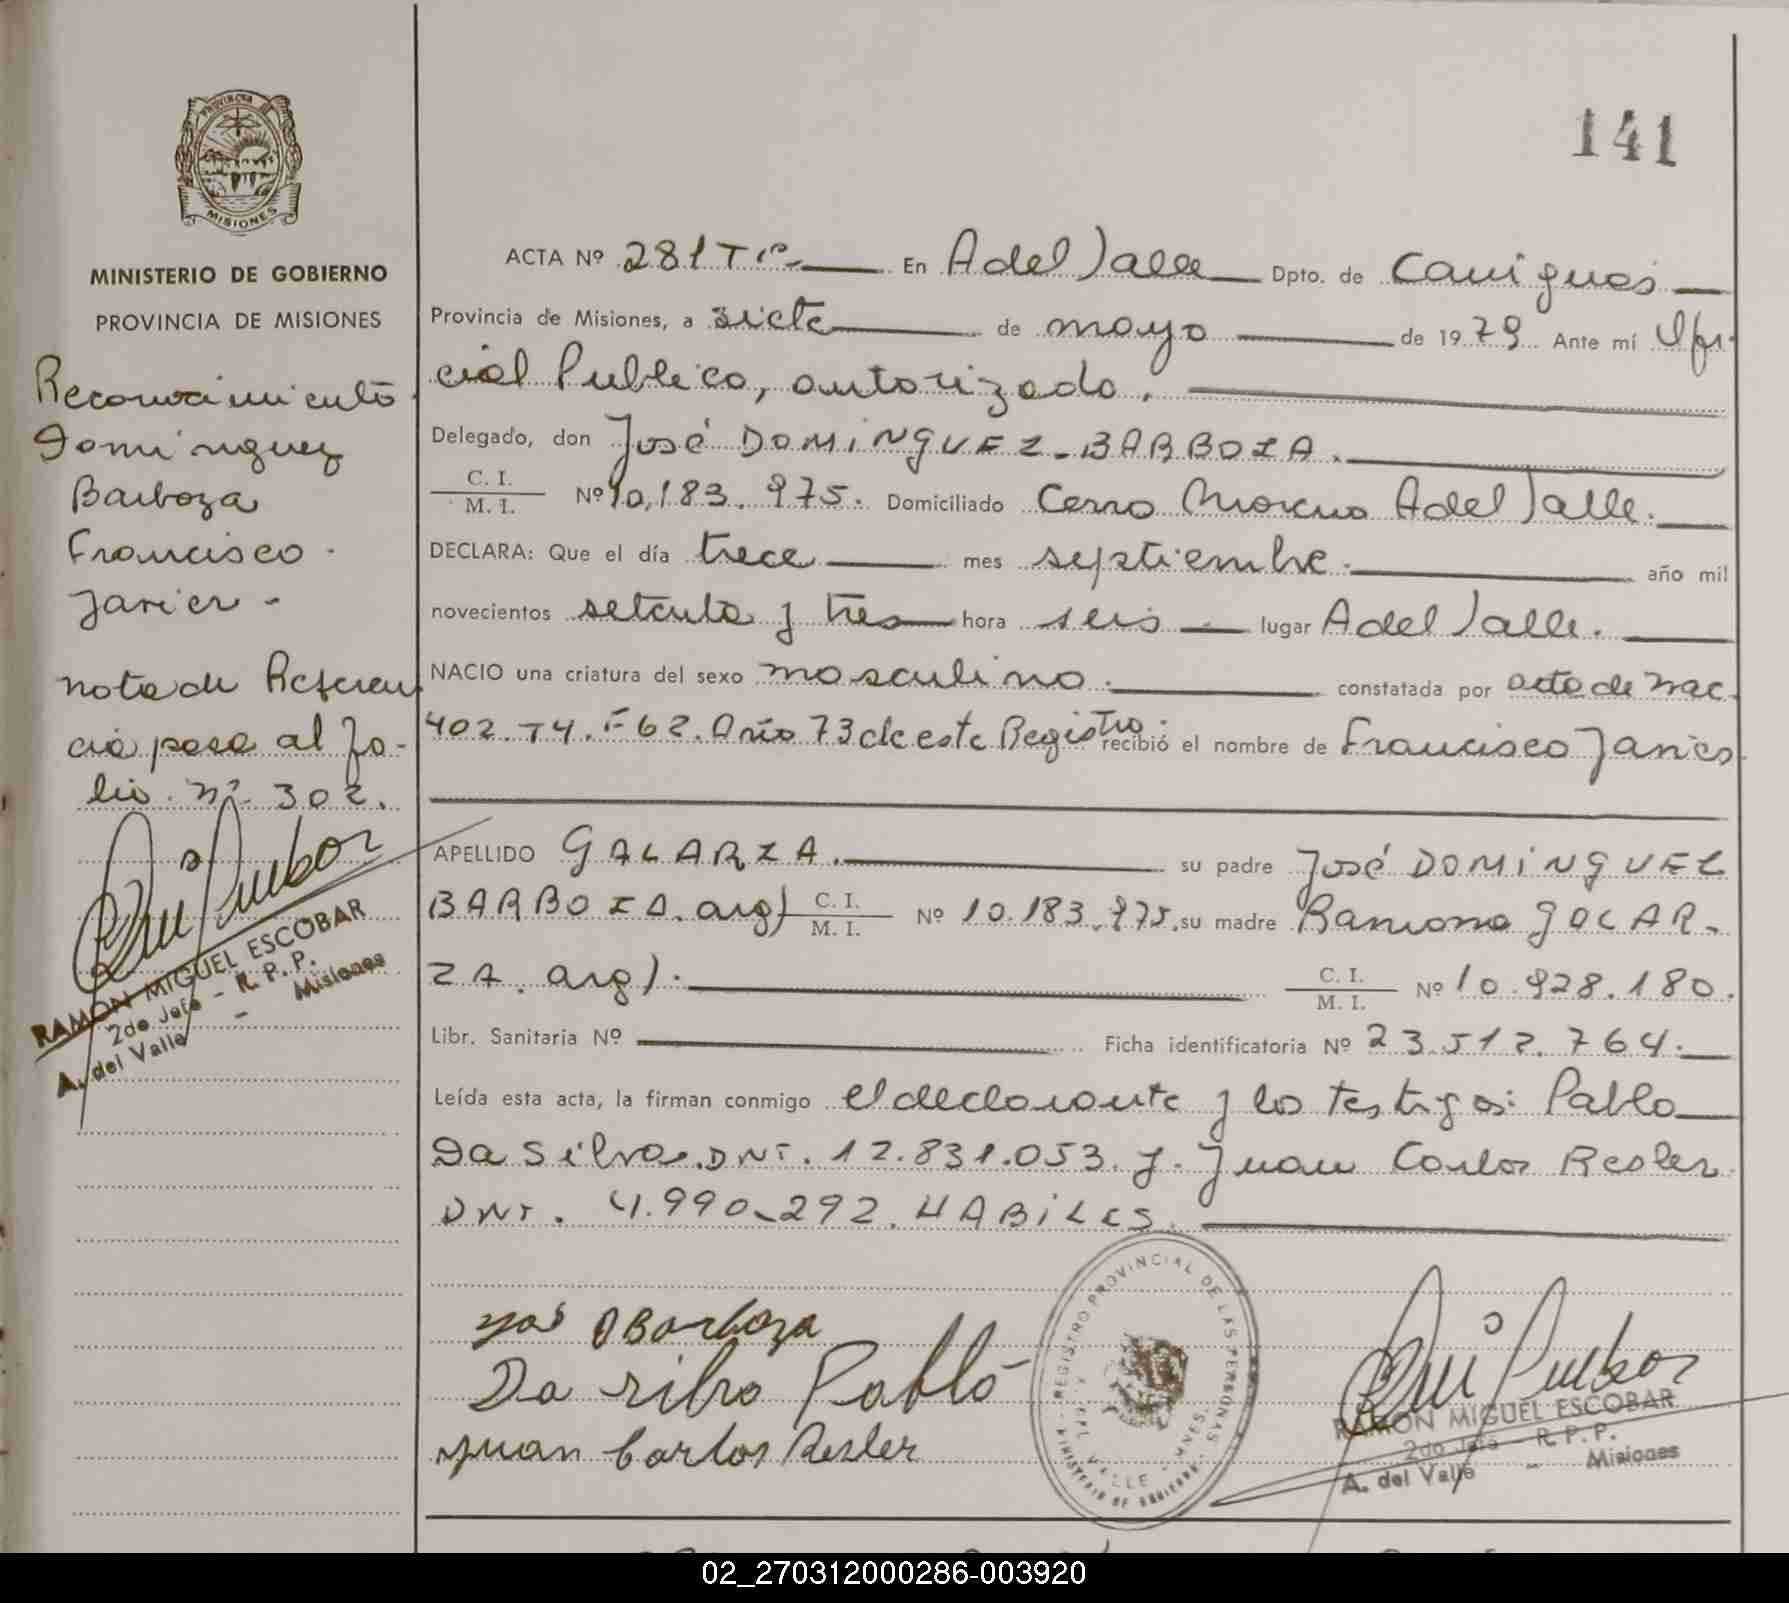 PROVINCIA
MISIONES
MINISTERIO DE GOBIERNO
PROVINCIA DE MISIONES
Reconocimiento
Dominguez
Barboza
Francisco
Javier -
nota de Referen
cia pasa al fo-
lio. Nº 302.
RAMON MIGUEL ESCOBAR
2do Jefe - R. P. P.
A. del Valle - Misiones
141
ACTA Nº 281 Tº En A del Valle Dpto. de Cainguas
Provincia de Misiones, a siete de mayo de 1979 Ante mí Ofi-
cial Publico, autorizado.
Delegado, don José DOMINGUEZ-BARBOZA.
C. I.
M. I. Nº 10.183.975. Domiciliado Cerro Moreno A del Valle.
DECLARA: Que el día trece mes septiembre. año mil
novecientos setenta y tres hora seis lugar A del Valle.
NACIO una criatura del sexo masculino. constatada por acta de nac.
402. T4. F62. Año 73 de este Registro. recibió el nombre de Francisco Javier
APELLIDO GALARZA. su padre José DOMINGUEZ
BARBOZA. arg) C. I. M. I. Nº 10.183.975. su madre Ramona GALAR-
ZA. arg). C. I. M. I. Nº 10.928.180.
Libr. Sanitaria Nº Ficha identificatoria Nº 23.512.764.
Leída esta acta, la firman conmigo el declarante y los testigos: Pablo
Da Silva. DNI. 12.831.053. y. Juan Carlos Resler
DNI. 4.990.292. HABILES.
José D Barboza
Da silva Pablo
Juan Carlos Resler
REGISTRO PROVINCIAL DE LAS PERSONAS
VALLE - MNES.
MINISTERIO DE GOBIERNO
RAMON MIGUEL ESCOBAR
2do Jefe - R. P. P.
A. del Valle - Misiones
02_270312000286-003920